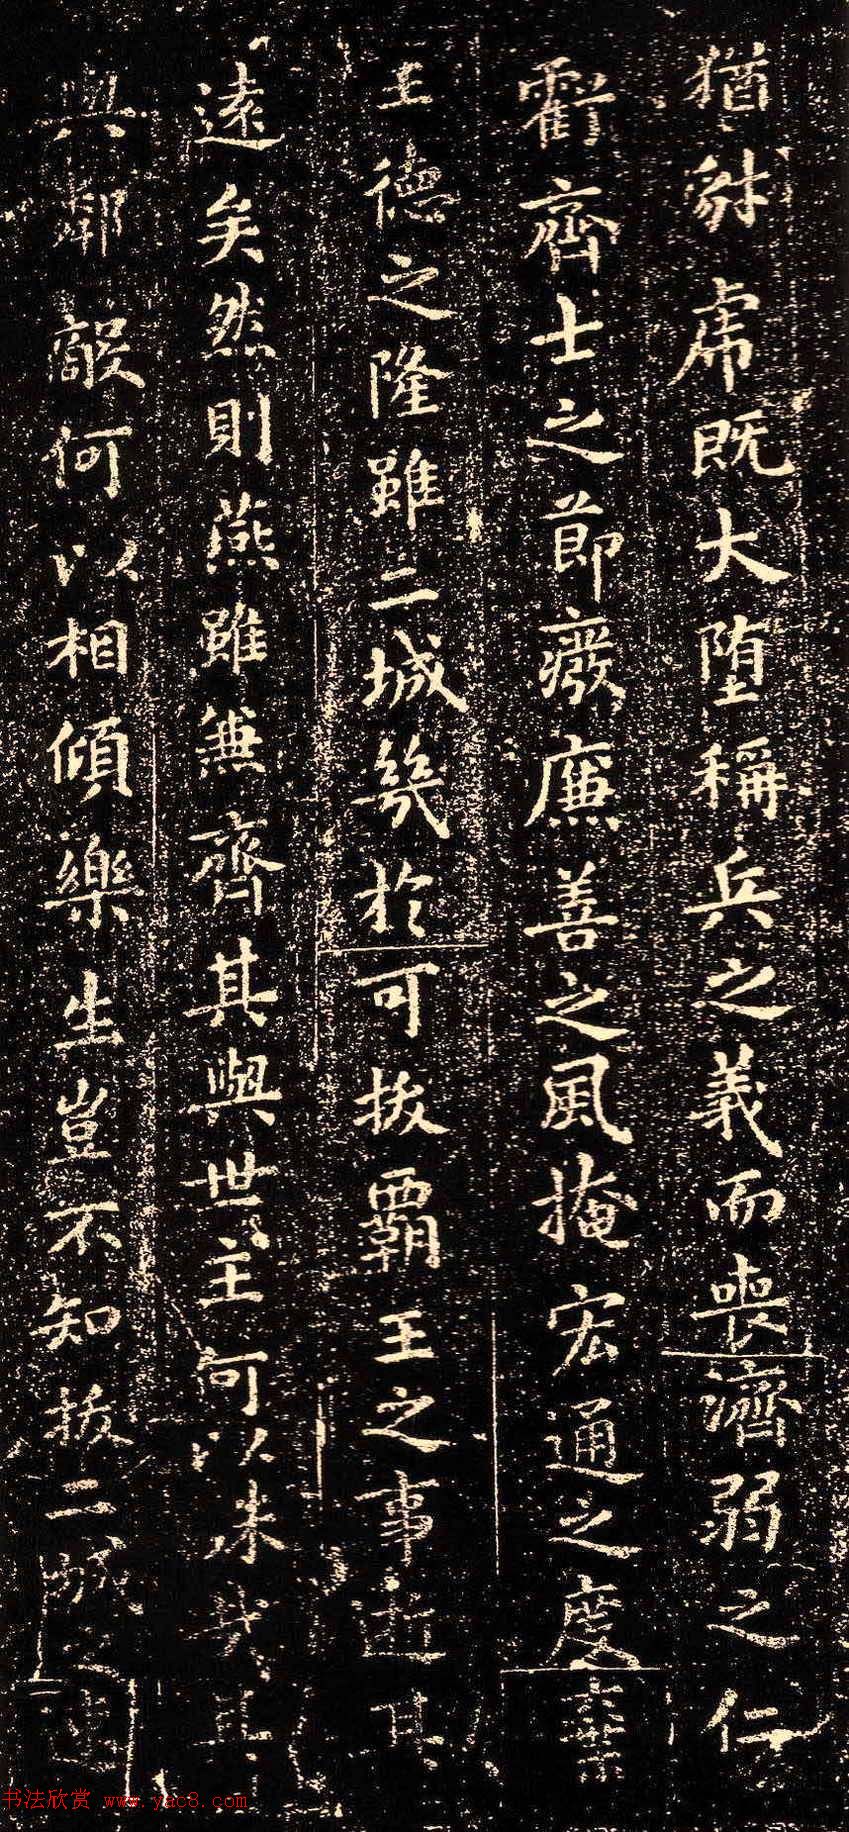 猶豺虎既大墮稱兵之義而喪濟弱之仁
虧齊士之節廢廉善之風掩宏通之度棄
王德之隆雖二城幾於可拔霸王之事逝其
遠矣然則燕雖兼齊其與世主何以殊哉其
與鄰敵何以相傾樂生豈不知拔二城之速
书法欣赏 www.yac8.com